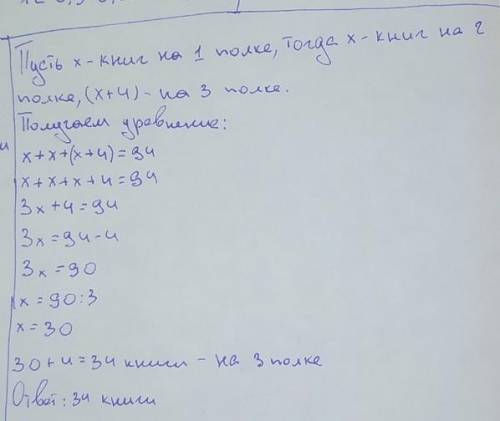 Пусть x - книг на 1 полке, тогда x - книг на 2
полке, (x+4) - на 3 полке.
Получаем уравнение:
x+x+(x+4)=94
x+x+x+4=94
3x+4=94
3x=94-4
3x=90
x=90:3
x=30
30+4=34 книги - на 3 полке
Ответ: 34 книги